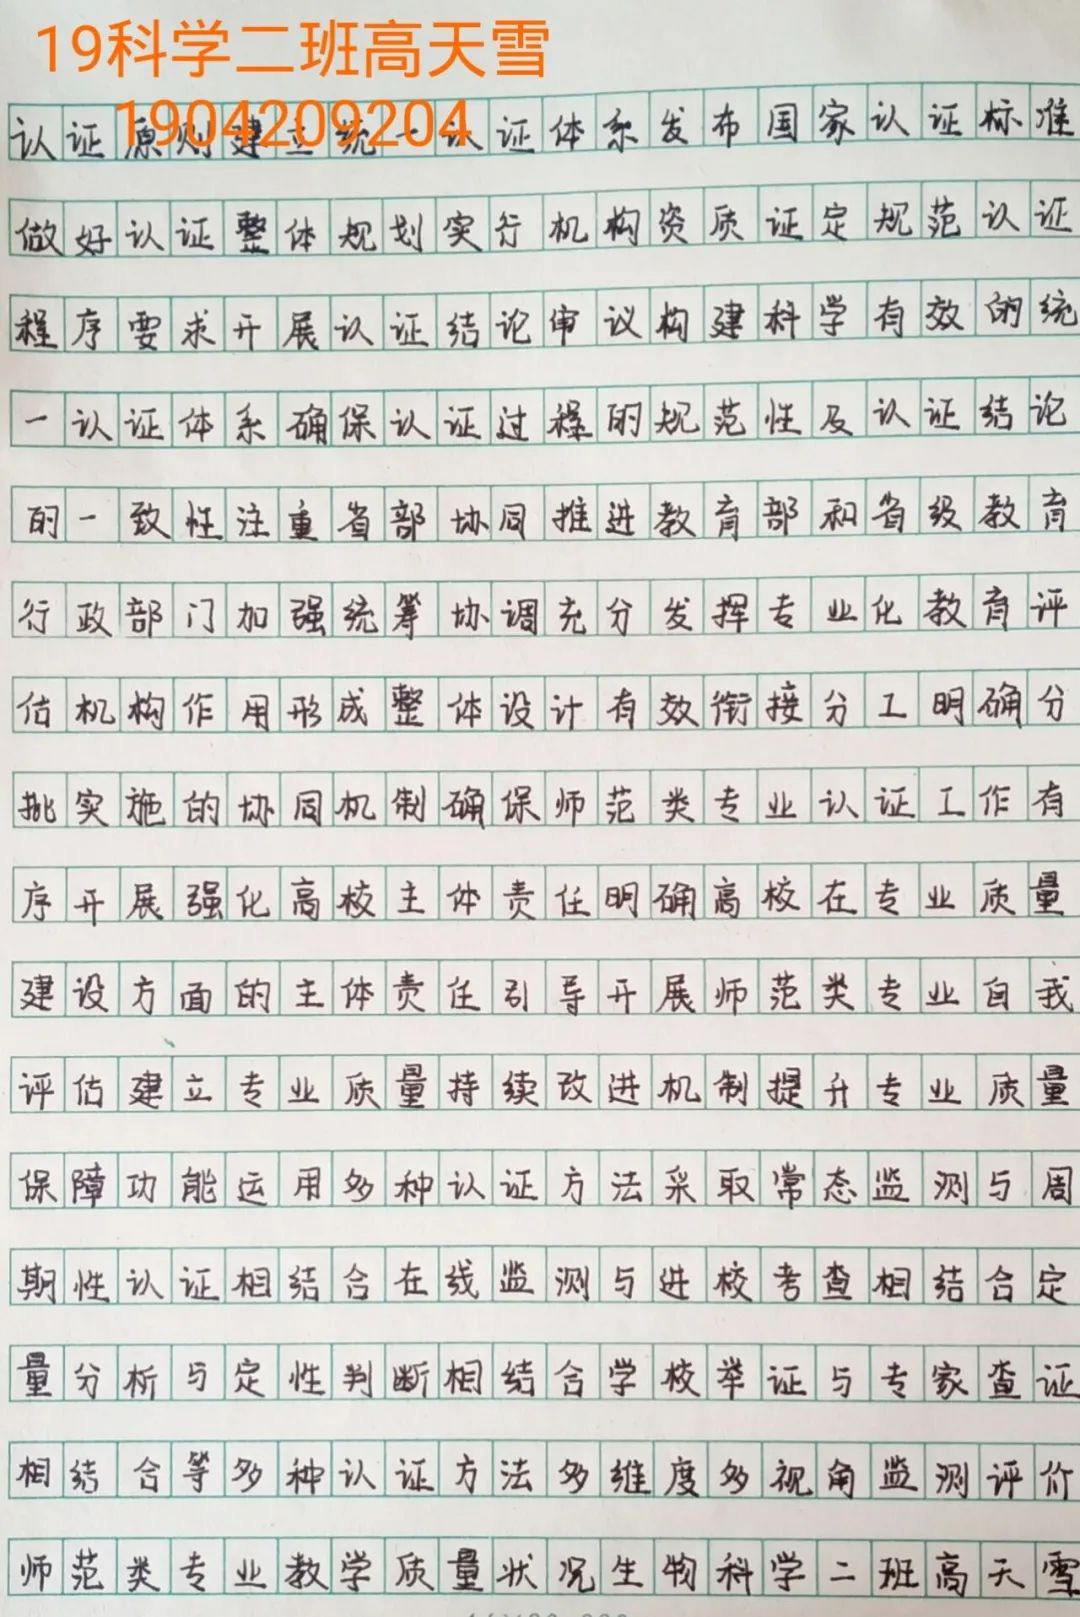 19科学二班高天雪
1904209204
认证原则建立统一认证体系发布国家认证标准
做好认证整体规划实行机构资质证定规范认证
程序要求开展认证结论审议构建科学有效的统
一认证体系确保认证过程的规范性及认证结论
的一致性注重省部协同推进教育部和省级教育
行政部门加强统筹协调充分发挥专业化教育评
估机构作用形成整体设计有效衔接分工明确分
批实施的协同机制确保师范类专业认证工作有
序开展强化高校主体责任明确高校在专业质量
建设方面的主体责任引导开展师范类专业自我
评估建立专业质量持续改进机制提升专业质量
保障功能运用多种认证方法采取常态监测与周
期性认证相结合在线监测与进校考查相结合定
量分析与定性判断相结合学校举证与专家查证
相结合等多种认证方法多维度多视角监测评价
师范类专业教学质量状况生物科学二班高天雪